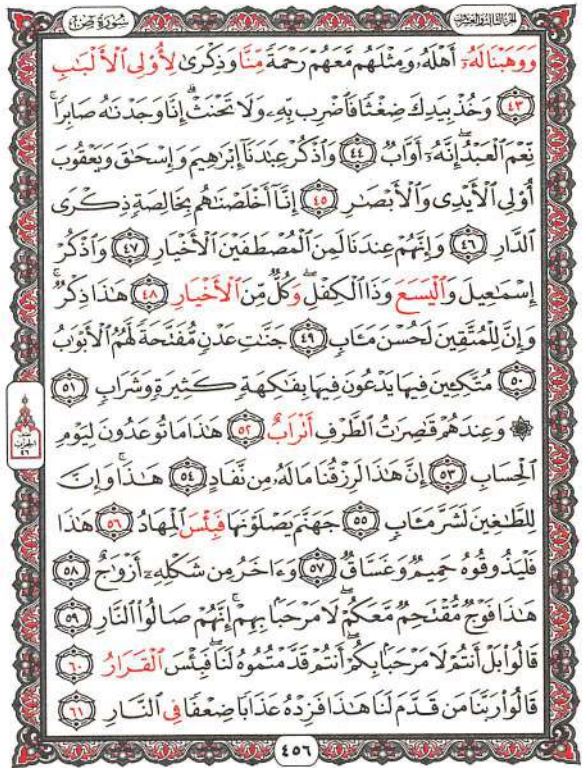 سُورَةُ صٓ ٣٨ الجزء الثالث والعشرون
وَوَهَبْنَا لَهُۥٓ أَهْلَهُۥ وَمِثْلَهُم مَّعَهُمْ رَحْمَةً مِّنَّا وَذِكْرَىٰ لِأُو۟لِى ٱلْأَلْبَٰبِ
﴿٤٣﴾ وَخُذْ بِيَدِكَ ضِغْثًا فَٱضْرِب بِّهِۦ وَلَا تَحْنَثْ ۗ إِنَّا وَجَدْنَٰهُ صَابِرًا ۚ
نِّعْمَ ٱلْعَبْدُ ۖ إِنَّهُۥٓ أَوَّابٌ ﴿٤٤﴾ وَٱذْكُرْ عِبَٰدَنَآ إِبْرَٰهِيمَ وَإِسْحَٰقَ وَيَعْقُوبَ
أُو۟لِى ٱلْأَيْدِى وَٱلْأَبْصَٰرِ ﴿٤٥﴾ إِنَّآ أَخْلَصْنَٰهُم بِخَالِصَةٍ ذِكْرَى
ٱلدَّارِ ﴿٤٦﴾ وَإِنَّهُمْ عِندَنَا لَمِنَ ٱلْمُصْطَفَيْنَ ٱلْأَخْيَارِ ﴿٤٧﴾ وَٱذْكُرْ
إِسْمَٰعِيلَ وَٱلْيَسَعَ وَذَا ٱلْكِفْلِ ۖ وَكُلٌّ مِّنَ ٱلْأَخْيَارِ ﴿٤٨﴾ هَٰذَا ذِكْرٌ ۚ
وَإِنَّ لِلْمُتَّقِينَ لَحُسْنَ مَـَٔابٍ ﴿٤٩﴾ جَنَّٰتِ عَدْنٍ مُّفَتَّحَةً لَّهُمُ ٱلْأَبْوَٰبُ
﴿٥٠﴾ مُتَّكِـِٔينَ فِيهَا يَدْعُونَ فِيهَا بِفَٰكِهَةٍ كَثِيرَةٍ وَشَرَابٍ ﴿٥١﴾
۞ وَعِندَهُمْ قَٰصِرَٰتُ ٱلطَّرْفِ أَتْرَابٌ ﴿٥٢﴾ هَٰذَا مَا تُوعَدُونَ لِيَوْمِ
ٱلْحِسَابِ ﴿٥٣﴾ إِنَّ هَٰذَا لَرِزْقُنَا مَا لَهُۥ مِن نَّفَادٍ ﴿٥٤﴾ هَٰذَا ۚ وَإِنَّ
لِلطَّٰغِينَ لَشَرَّ مَـَٔابٍ ﴿٥٥﴾ جَهَنَّمَ يَصْلَوْنَهَا فَبِئْسَ ٱلْمِهَادُ ﴿٥٦﴾ هَٰذَا
فَلْيَذُوقُوهُ حَمِيمٌ وَغَسَّاقٌ ﴿٥٧﴾ وَءَاخَرُ مِن شَكْلِهِۦٓ أَزْوَٰجٌ ﴿٥٨﴾
هَٰذَا فَوْجٌ مُّقْتَحِمٌ مَّعَكُمْ ۖ لَا مَرْحَبًۢا بِهِمْ ۚ إِنَّهُمْ صَالُوا۟ ٱلنَّارِ ﴿٥٩﴾
قَالُوا۟ بَلْ أَنتُمْ لَا مَرْحَبًۢا بِكُمْ ۖ أَنتُمْ قَدَّمْتُمُوهُ لَنَا ۖ فَبِئْسَ ٱلْقَرَارُ ﴿٦٠﴾
قَالُوا۟ رَبَّنَا مَن قَدَّمَ لَنَا هَٰذَا فَزِدْهُ عَذَابًا ضِعْفًا فِى ٱلنَّارِ ﴿٦١﴾
٤٥٦